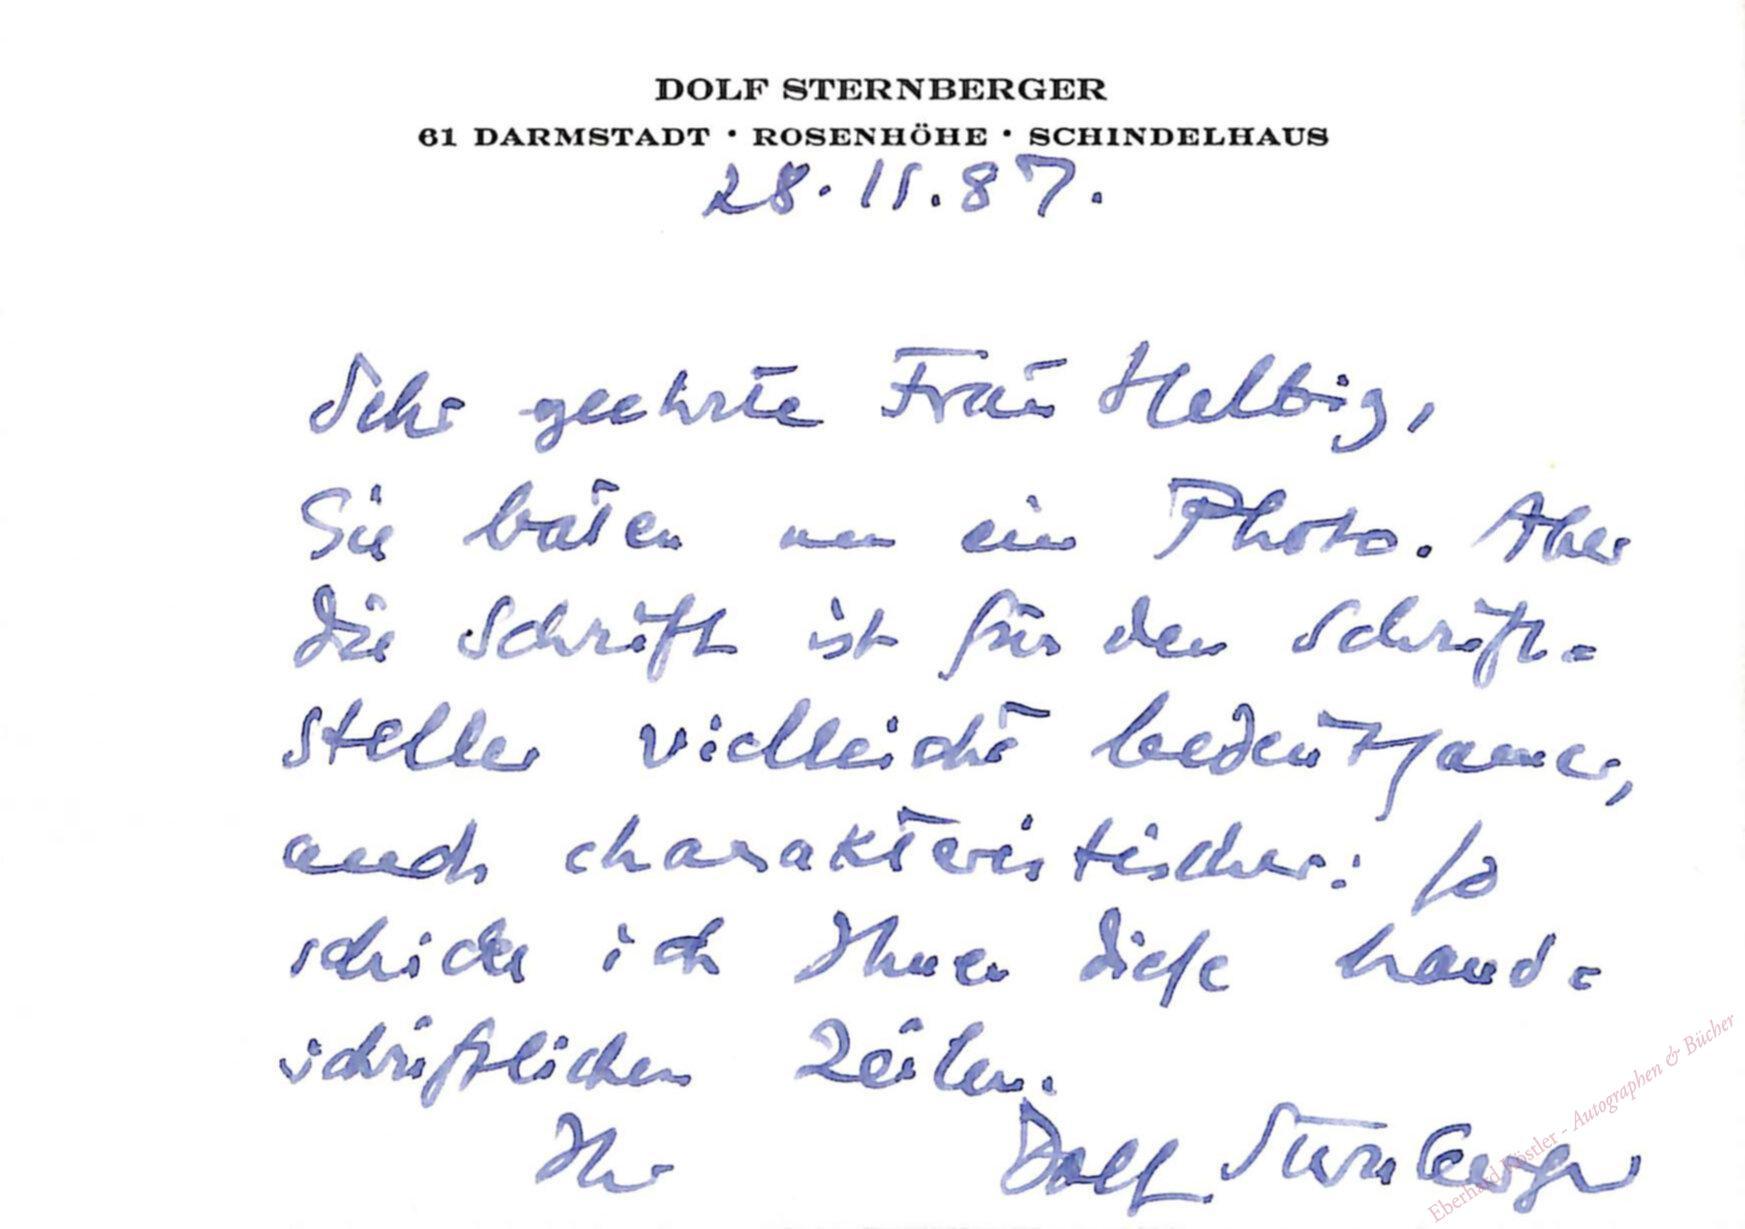 DOLF STERNBERGER
61 DARMSTADT · ROSENHÖHE · SCHINDELHAUS
28.11.87.
Sehr geehrte Frau Helbig,
Sie baten um ein Photo. Aber
die Schrift ist für den Schrift=
steller vielleicht bedeutsamer,
auch charakteristischer: so
schicke ich Ihnen diese hand=
schriftlichen Zeilen.
Ihr Dolf Sternberger
Eberhard Köstler - Autographen & Bücher